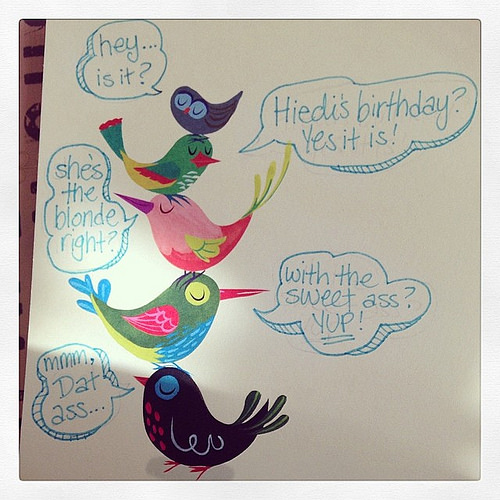 hey...
is it?
Hiedi's birthday?
Yes it is!
she's
the
blonde
right?
with the
sweet ass?
YUP!
mmm,
Dat
ass...